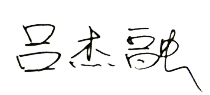 吕杰融